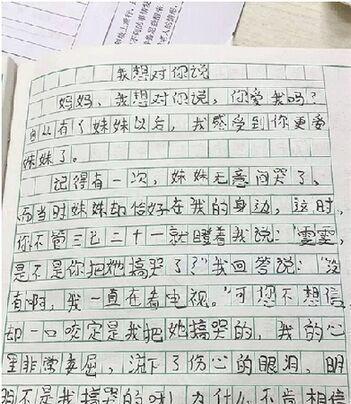 我想对你说
妈妈，我想对你说，你爱我吗？
自从有了妹妹以后，我感受到你更爱
妹妹了。
记得有一次，妹妹无意间哭了，
而当时妹妹却恰好在我的身边，这时，
你不管三七二十一就瞪着我说：“雯雯，
是不是你把她搞哭了？”我回答说：“没
有啊，我一直在看电视。”可您不想信
却一口咬定是我把她搞哭的，我的心
里非常委屈，流下了伤心的眼泪，明
明不是我搞哭的呀！为什么不肯相信